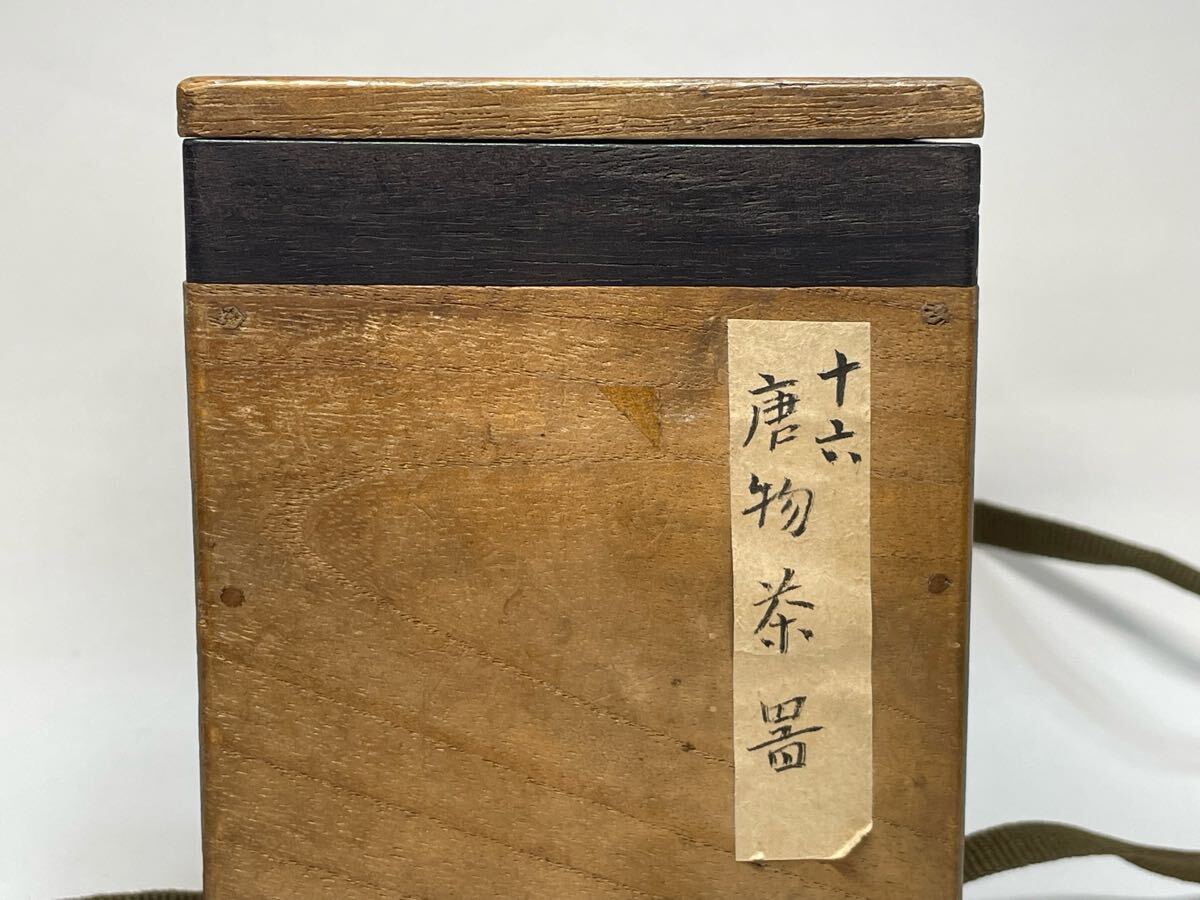 十六
唐物茶器